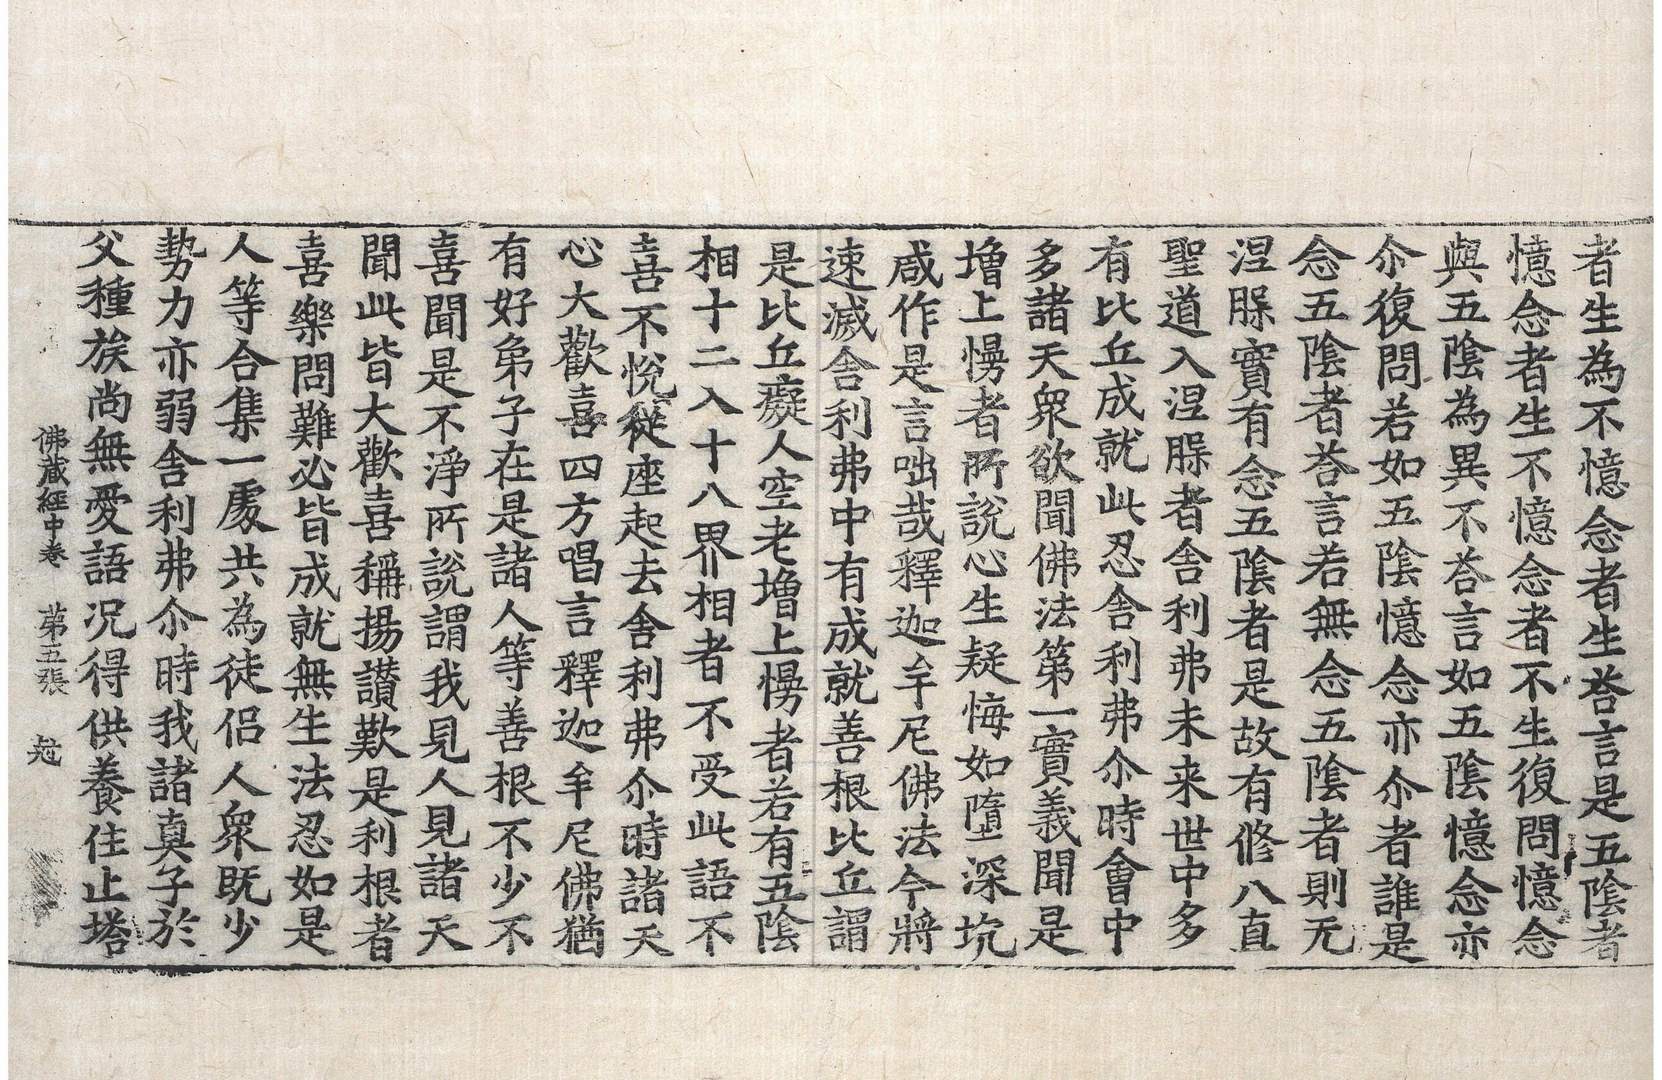 者生為不憶念者生荅言是五陰者
憶念者生不憶念者不生復問憶念
與五陰為異不荅言如五陰憶念亦
尒復問若如五陰憶念亦尒者誰是
念五陰者荅言若無念五陰者則无
涅槃實有念五陰者是故有修八直
聖道入涅槃者舍利弗未来世中多
有比丘成就此忍舍利弗尒時會中
多諸天衆欲聞佛法第一實義聞是
增上慢者所說心生疑悔如墮深坑
咸作是言咄哉釋迦牟尼佛法今將
速滅舍利弗中有成就善根比丘謂
是比丘癡人空老增上慢者若有五陰
相十二入十八界相者不受此語不
喜不悅從座起去舍利弗尒時諸天
心大歡喜四方唱言釋迦牟尼佛猶
有好弟子在是諸人等善根不少不
喜聞是不淨所說謂我見人見諸天
聞此皆大歡喜稱揚讃歎是利根者
喜樂問難必皆成就無生法忍如是
人等合集一處共為徒侶人衆既少
勢力亦弱舍利弗尒時我諸真子於
父種族尚無愛語况得供養住止塔
佛蔵經中卷 第五張 尅